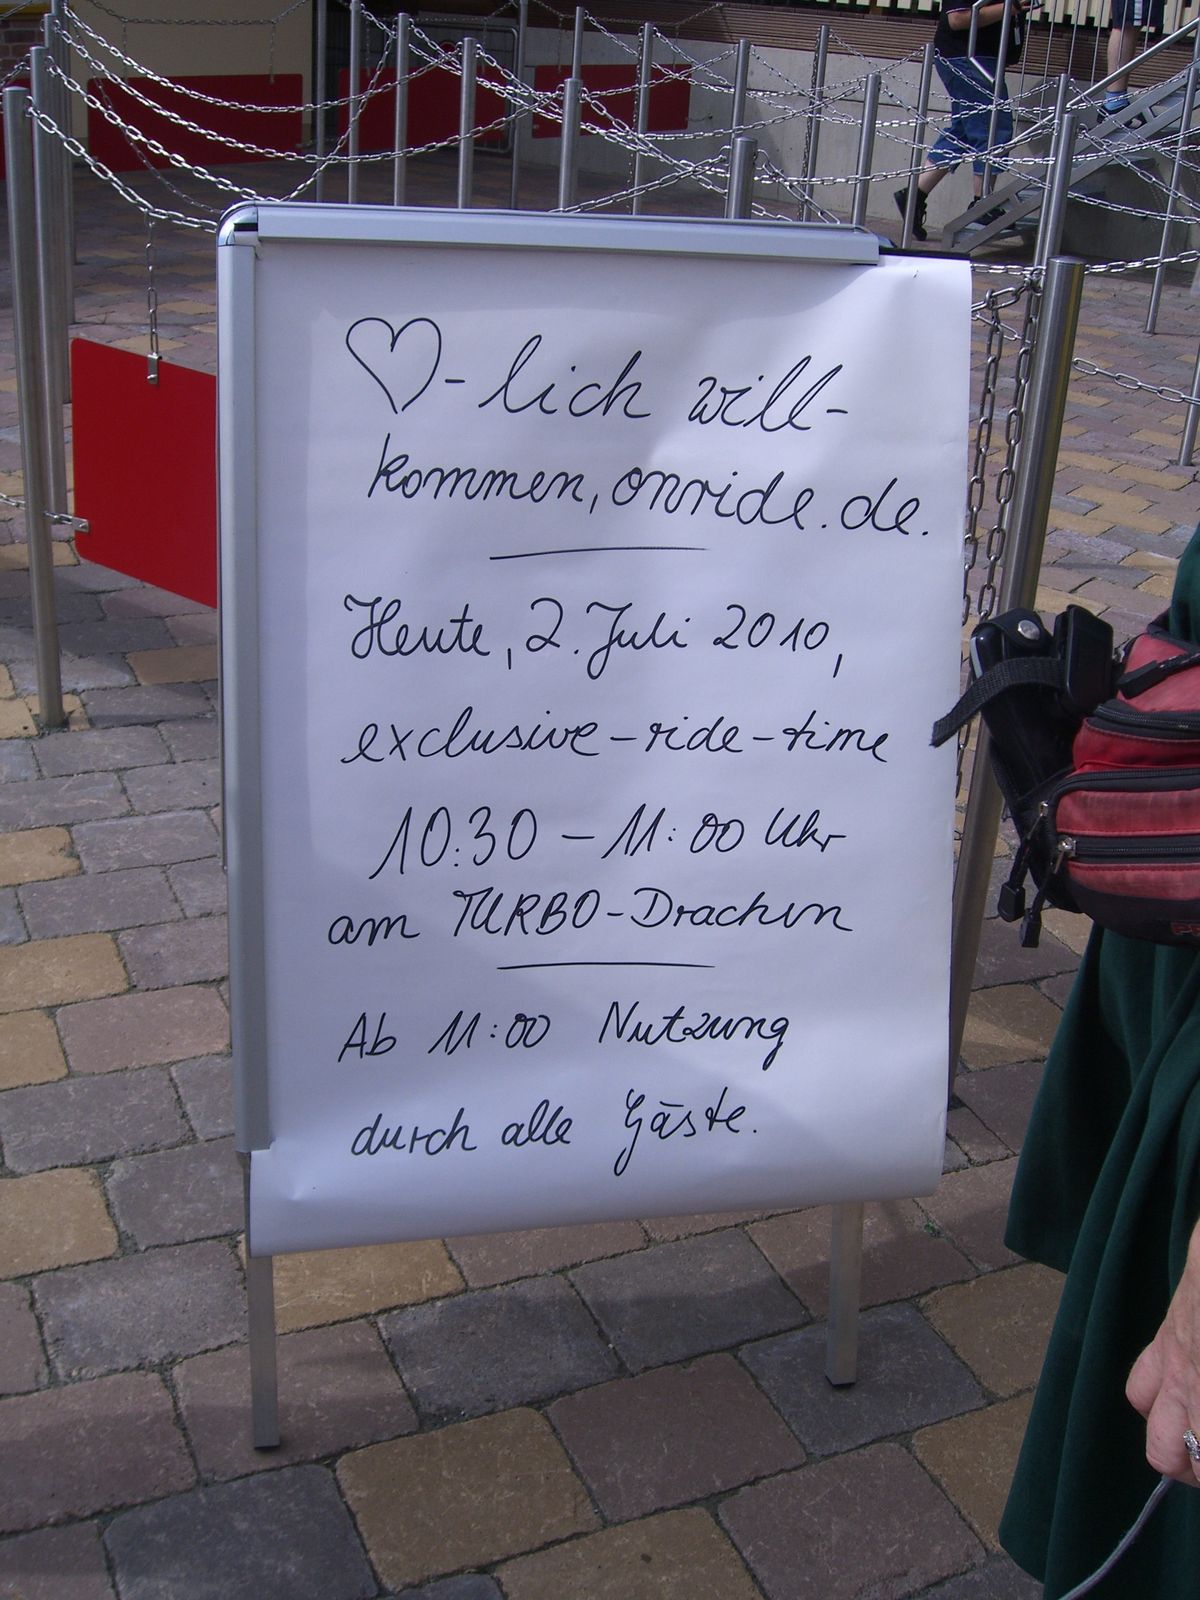 ♡-lich will-
kommen, onride.de.
Heute, 2. Juli 2010,
exclusive-ride-time
10:30 – 11:00 Uhr
am TURBO-Drachen
Ab 11:00 Nutzung
durch alle Gäste.